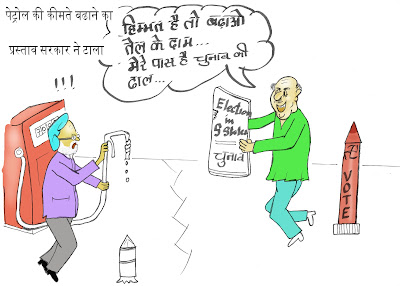 पेट्रोल की कीमते बढाने का
प्रस्ताव सरकार ने टाला
हिम्मत है तो बढ़ाओ
तेल के दाम...
मेरे पास है चुनाव की
ढाल...
!!!
Election
in
5 States
चुनाव
VOTE